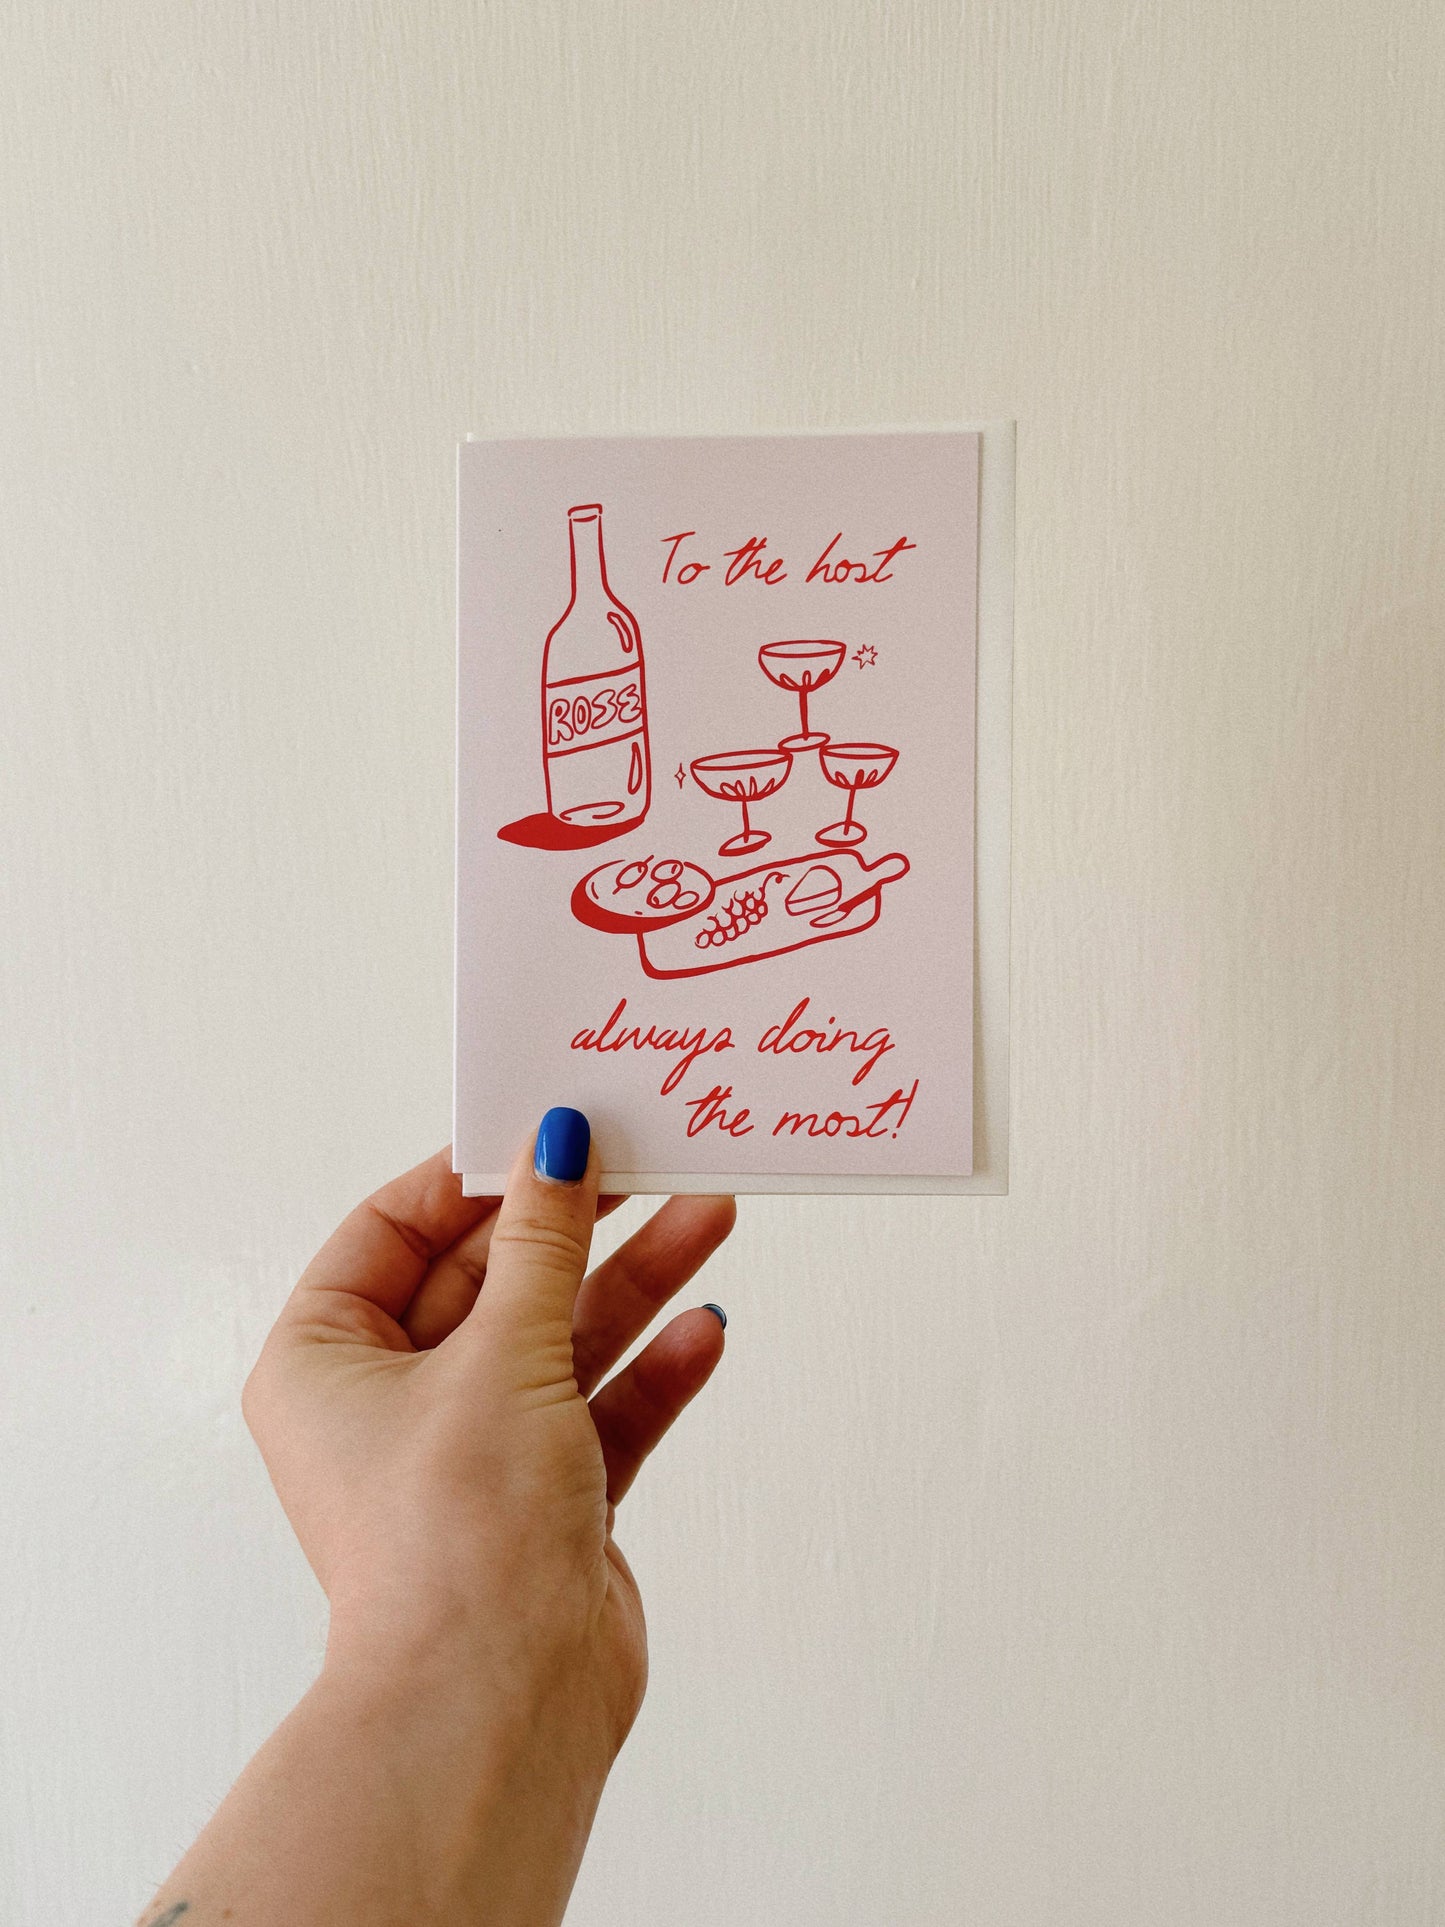 To the host
ROSE
always doing
the most!